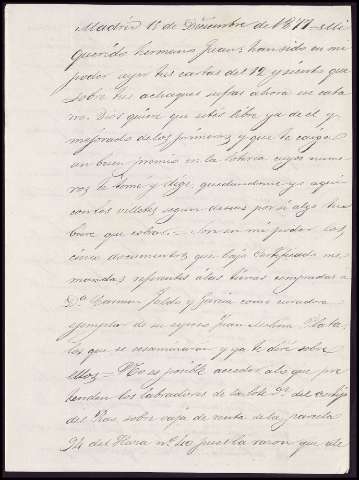 Madrid 15 de Diciembre de 1877 - Mi
querido hermano Juan: han sido en mi
poder ayer tus cartas del 12 y siento que
sobre tus achaques sufras ahora un catar-
ro. Dios quiera que estés libre ya de el y
mejorado de los primeros y que te caiga
un buen premio en la loteria cuyos nume-
ros te tomé y elegí, quedandome yo aquí
con los villetes segun deseas por si algo tu-
biere que cobrar. = Son en mi poder los
cinco documentos que bajo certificado me
mandas referentes á las tierras compradas a
Dª Carmen y Garcia como curadora
ejemplar de su esposo Juan Molina
los que se ecsaminarán y ya te diré sobre
ellos = No es posible acceder a lo que pre-
tenden los labradores de lote 2º del cortijo
del sobre vaja de renta de la parcela
34 del nº 40 pues la razon que ale